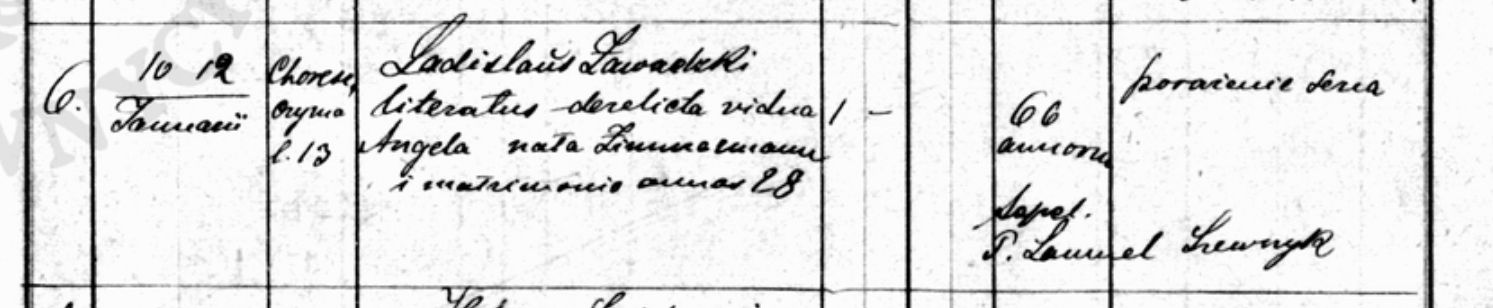 6.
10 12
Januarii
Chorąsz,
l. 13
Ladislaus Zawadzki
literatus derelicta vidua
Angela nata Zimmermann
i matrimonio annos 28
1 -
66
annorum
porażenie serca
Sepel.
P. Samuel Szewczyk